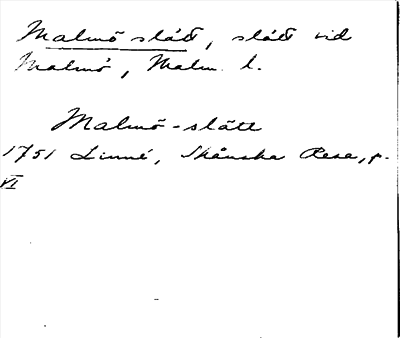 Malmö slätt, slätt vid
Malmö, Malm. l.
Malmö-slätt
1751 Linné, Skånska Resa, p.
VI